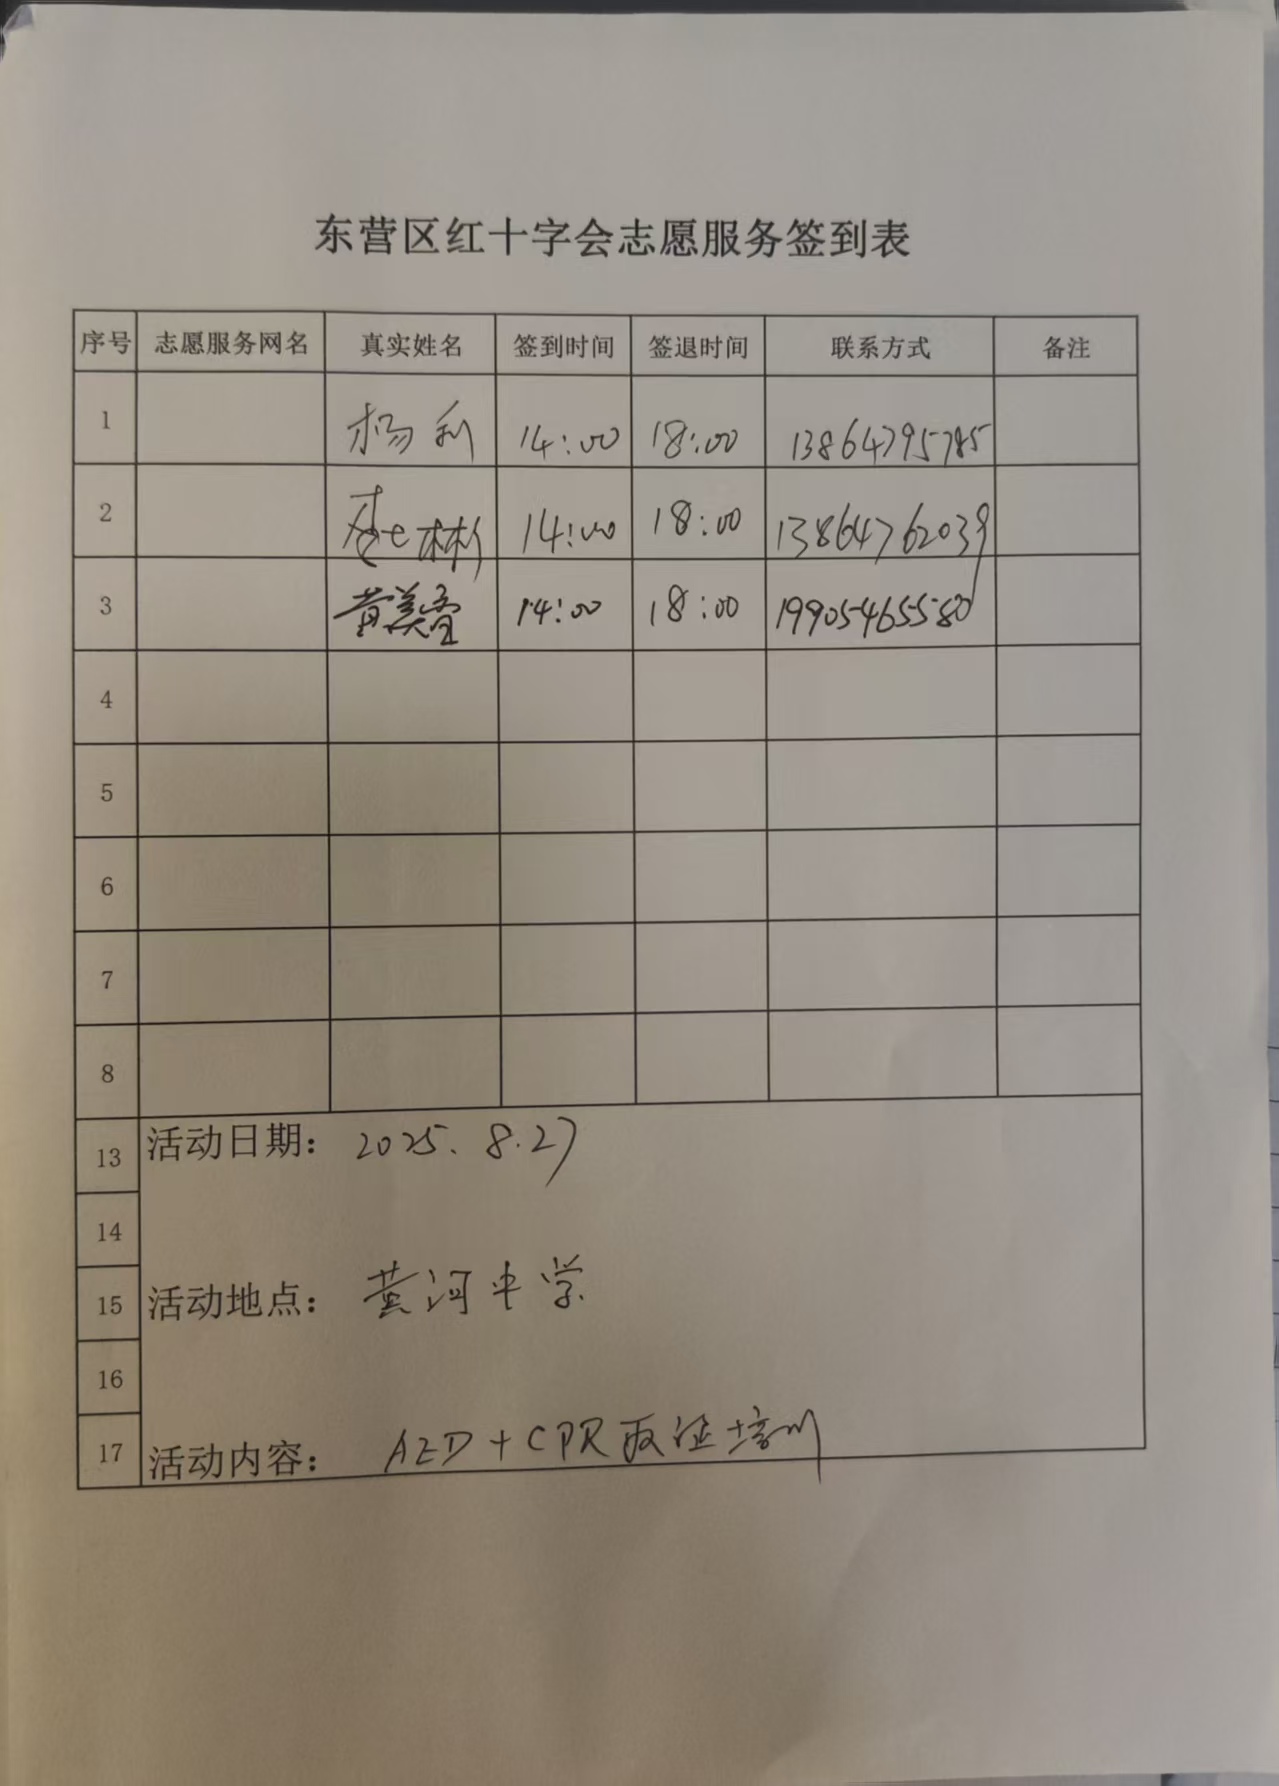 东营区红十字会志愿服务签到表
序号 志愿服务网名 真实姓名 签到时间 签退时间 联系方式 备注
1 杨利 14:00 18:00 13864795785
2 林 14:00 18:00 13864762039
3 黄美萱 14:00 18:00 19905465580
4
5
6
7
8
13 活动日期： 2025. 8.27
14
15 活动地点： 黄河中学
16
17 活动内容： AED+CPR取证培训